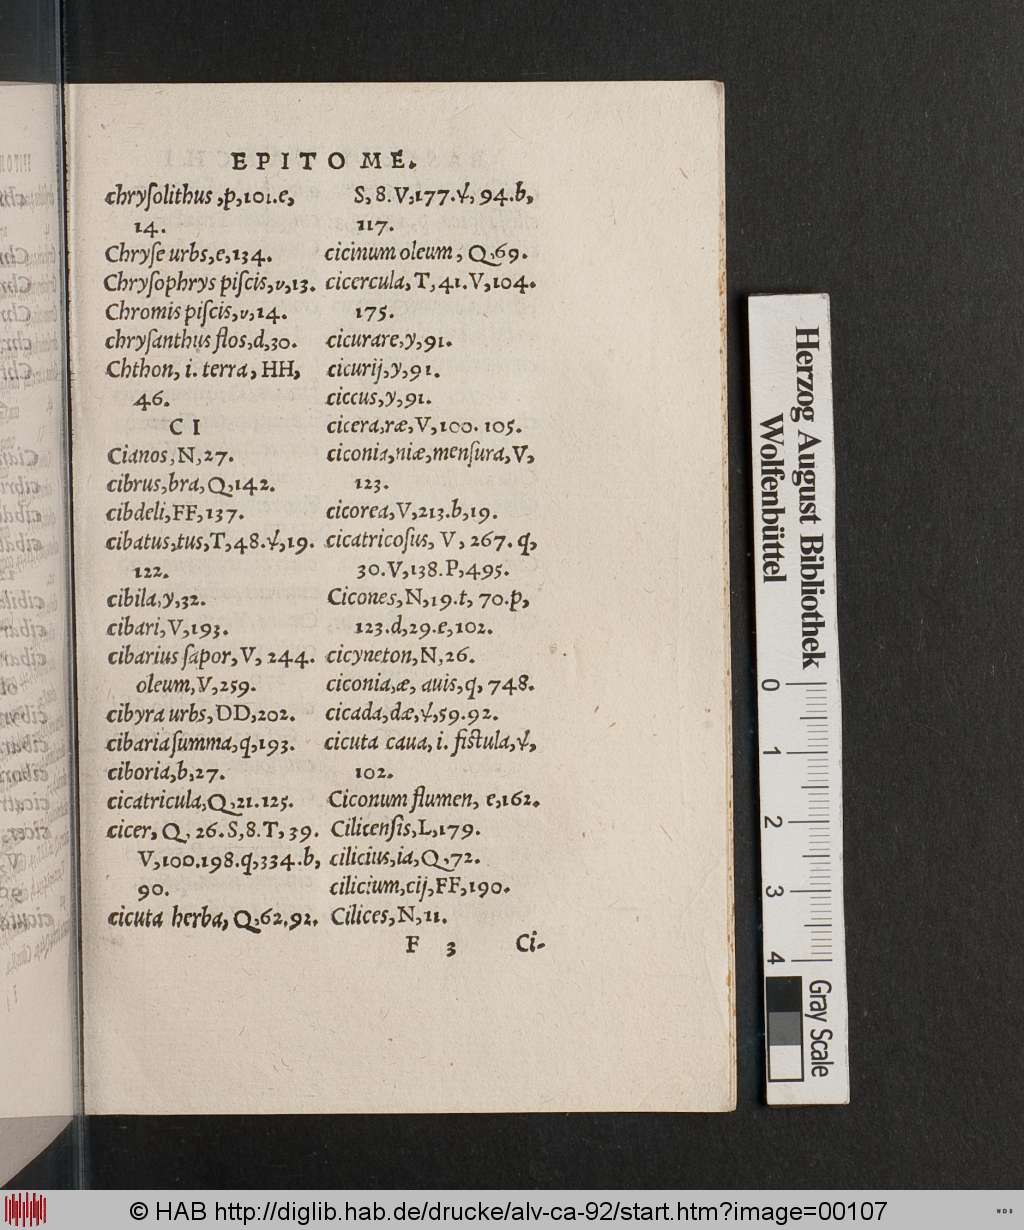 EPITOME.
chryſolithus, p, 101. e,
14.
Chryſe urbs, e, 134.
Chryſophrys piſcis, υ, 13.
Chromis piſcis, υ, 14.
chryſanthus flos, d, 30.
Chthon, i. terra, HH,
46.
C I
Cianos, N, 27.
cibrus, bra, Q, 142.
cibdeli, FF, 137.
cibatus, tus, T, 48. ψ, 19.
122.
cibila, y, 32.
cibari, V, 193.
cibarius ſapor, V, 244.
oleum, V, 259.
cibyra urbs, DD, 202.
cibaria ſumma, q, 193.
ciboria, b, 27.
cicatricula, Q, 21. 125.
cicer, Q, 26. S, 8. T, 39.
V, 100. 198. q, 334. b,
90.
cicuta herba, Q, 62. 92.
S, 8. V, 177. ψ, 94. b,
117.
cicinum oleum, Q, 69.
cicercula, T, 41. V, 104.
175.
cicurare, y, 91.
cicurij, y, 91.
ciccus, y, 91.
cicera, ræ, V, 100. 105.
ciconia, niæ, menſura, V,
123.
cicorea, V, 213. b, 19.
cicatricoſus, V, 267. q,
30. V, 138. P, 495.
Cicones, N, 19. t, 70. p,
123. d, 29. e, 102.
cicyneton, N, 26.
ciconia, æ, auis, q, 748.
cicada, dæ, ψ, 59. 92.
cicuta caua, i. fiſtula, ψ,
102.
Ciconum flumen, e, 162.
Cilicenſis, L, 179.
cilicius, ia, Q, 72.
cilicium, cij, FF, 190.
Cilices, N, 11.
F 3 Ci-
Herzog August Bibliothek
Wolfenbüttel
0 1 2 3 4
Gray Scale
© HAB http://diglib.hab.de/drucke/alv-ca-92/start.htm?image=00107